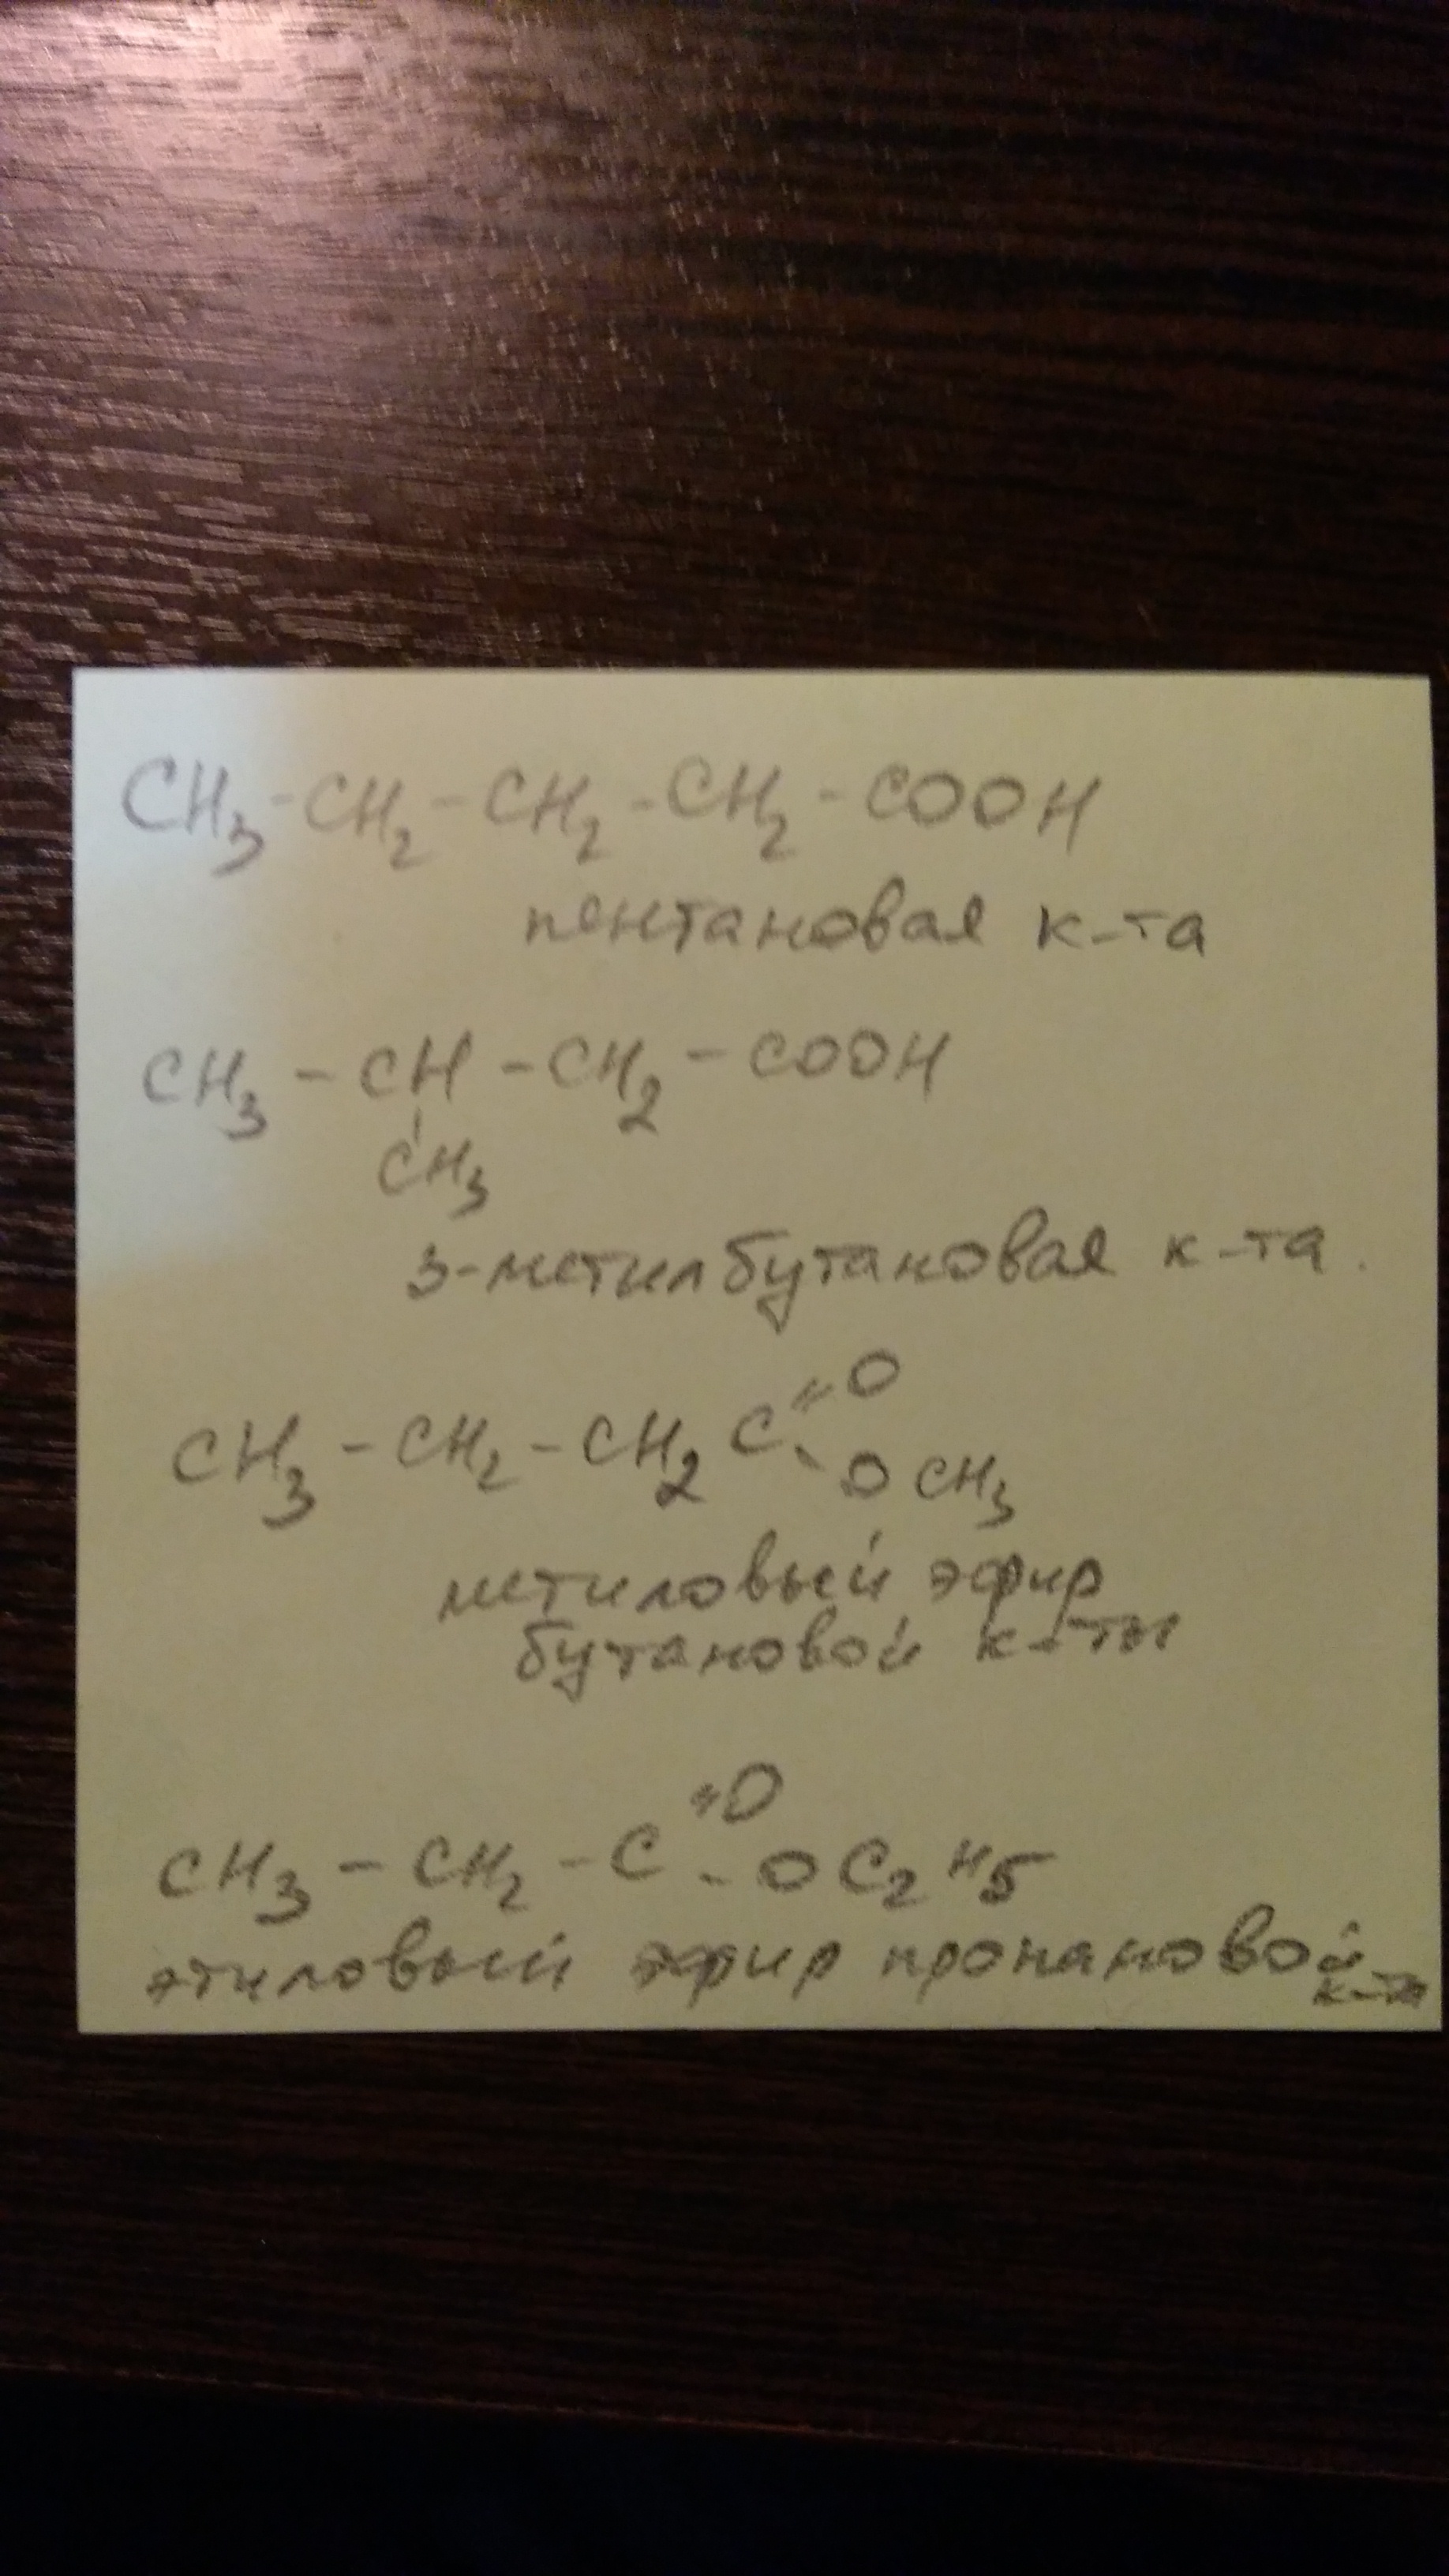 CH₃-CH₂-CH₂-CH₂-COOH
пентановая к-та
CH₃-CH-CH₂-COOH
CH₃
3-метилбутановая к-та.
O
CH₃-CH₂-CH₂ C
OCH₃
метиловый эфир
бутановой к-ты
=O
CH₃-CH₂-C-OC₂H₅
этиловый эфир пропановой
к-ты